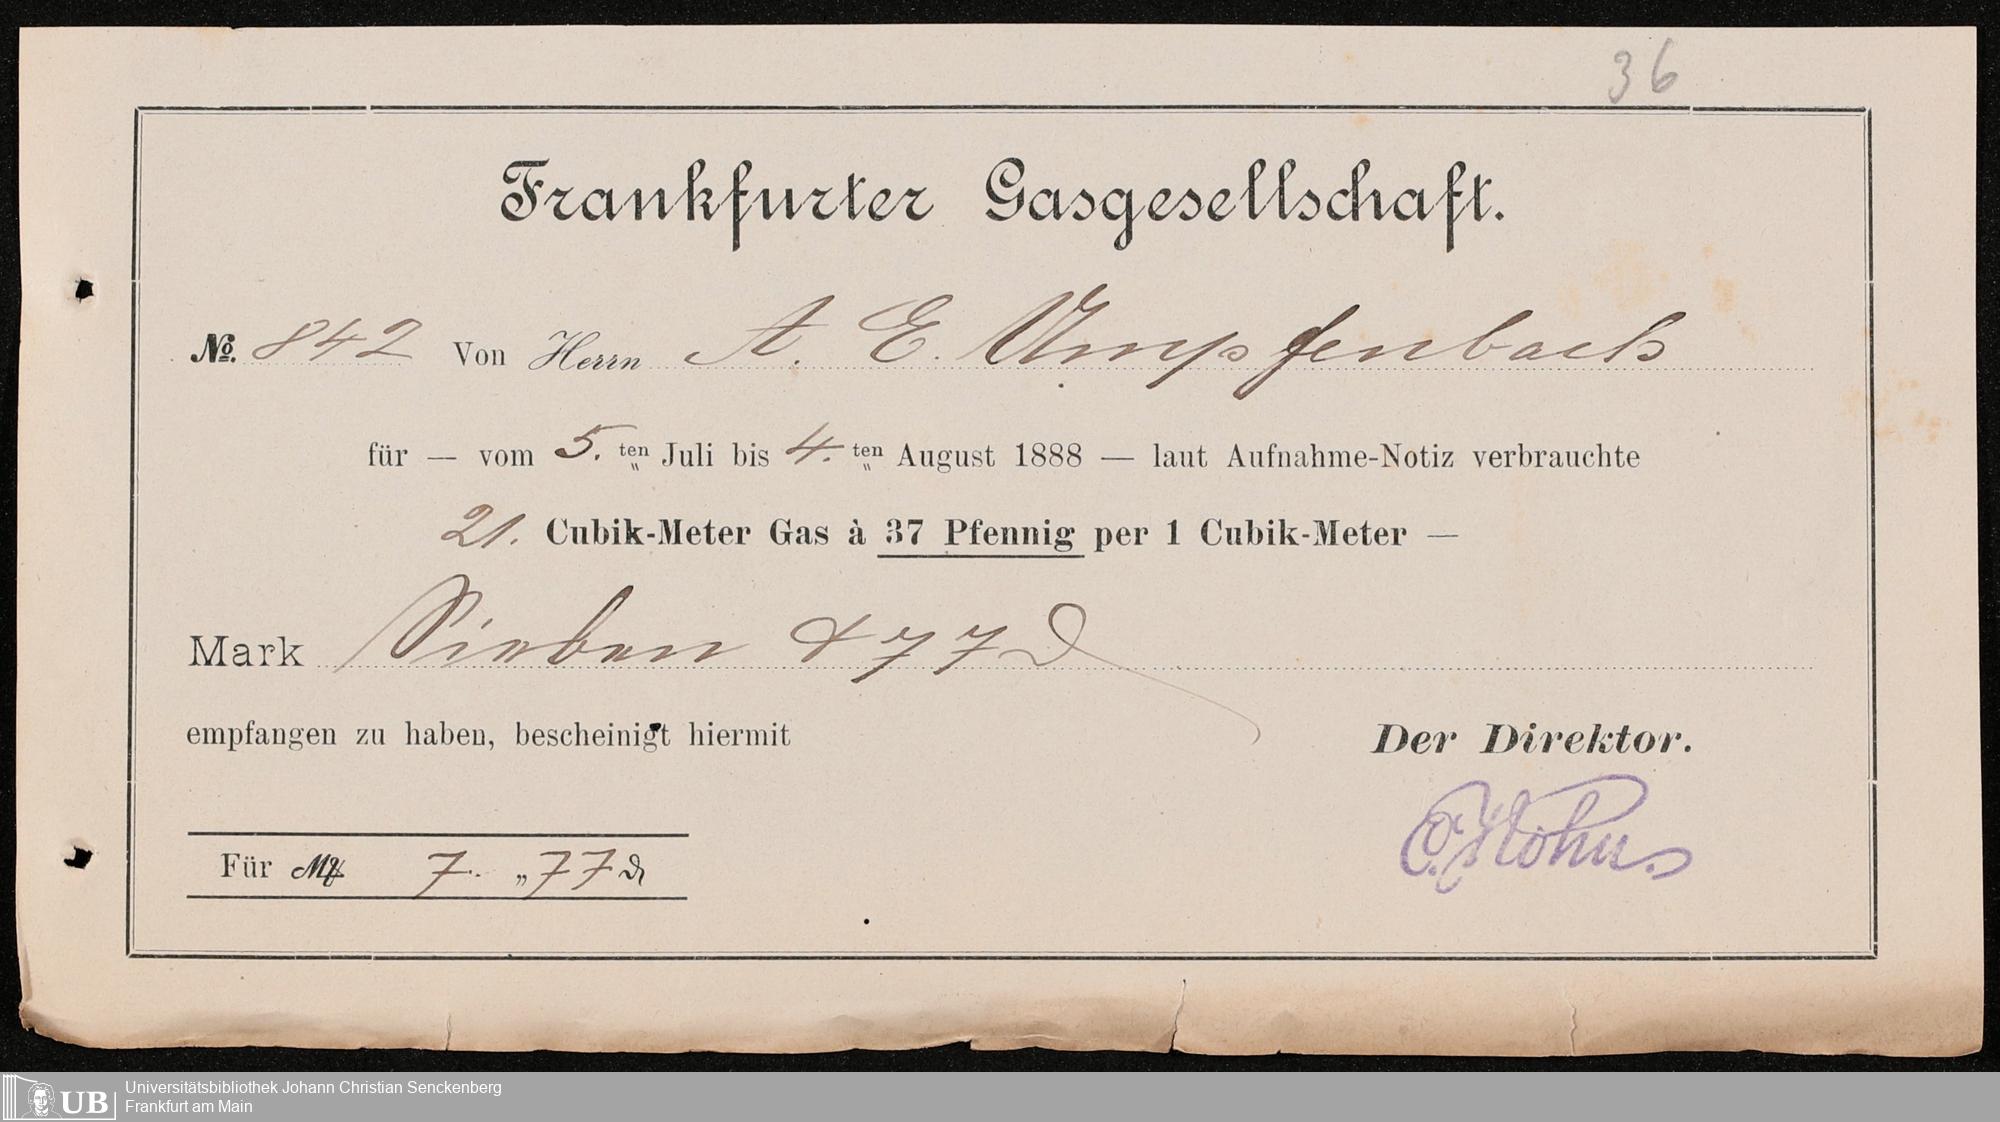 36
Frankfurter Gasgesellschaft.
No. 842 Von Herrn A. E. Umpfenbach
für — vom 5. ten Juli bis 4. ten August 1888 — laut Aufnahme-Notiz verbrauchte
21. Cubik-Meter Gas à 37 Pfennig per 1 Cubik-Meter —
Mark Sieben & 77 ₰
empfangen zu haben, bescheinigt hiermit
Der Direktor.
Für ℳ 7. „77 ₰
UB
Universitätsbibliothek Johann Christian Senckenberg
Frankfurt am Main